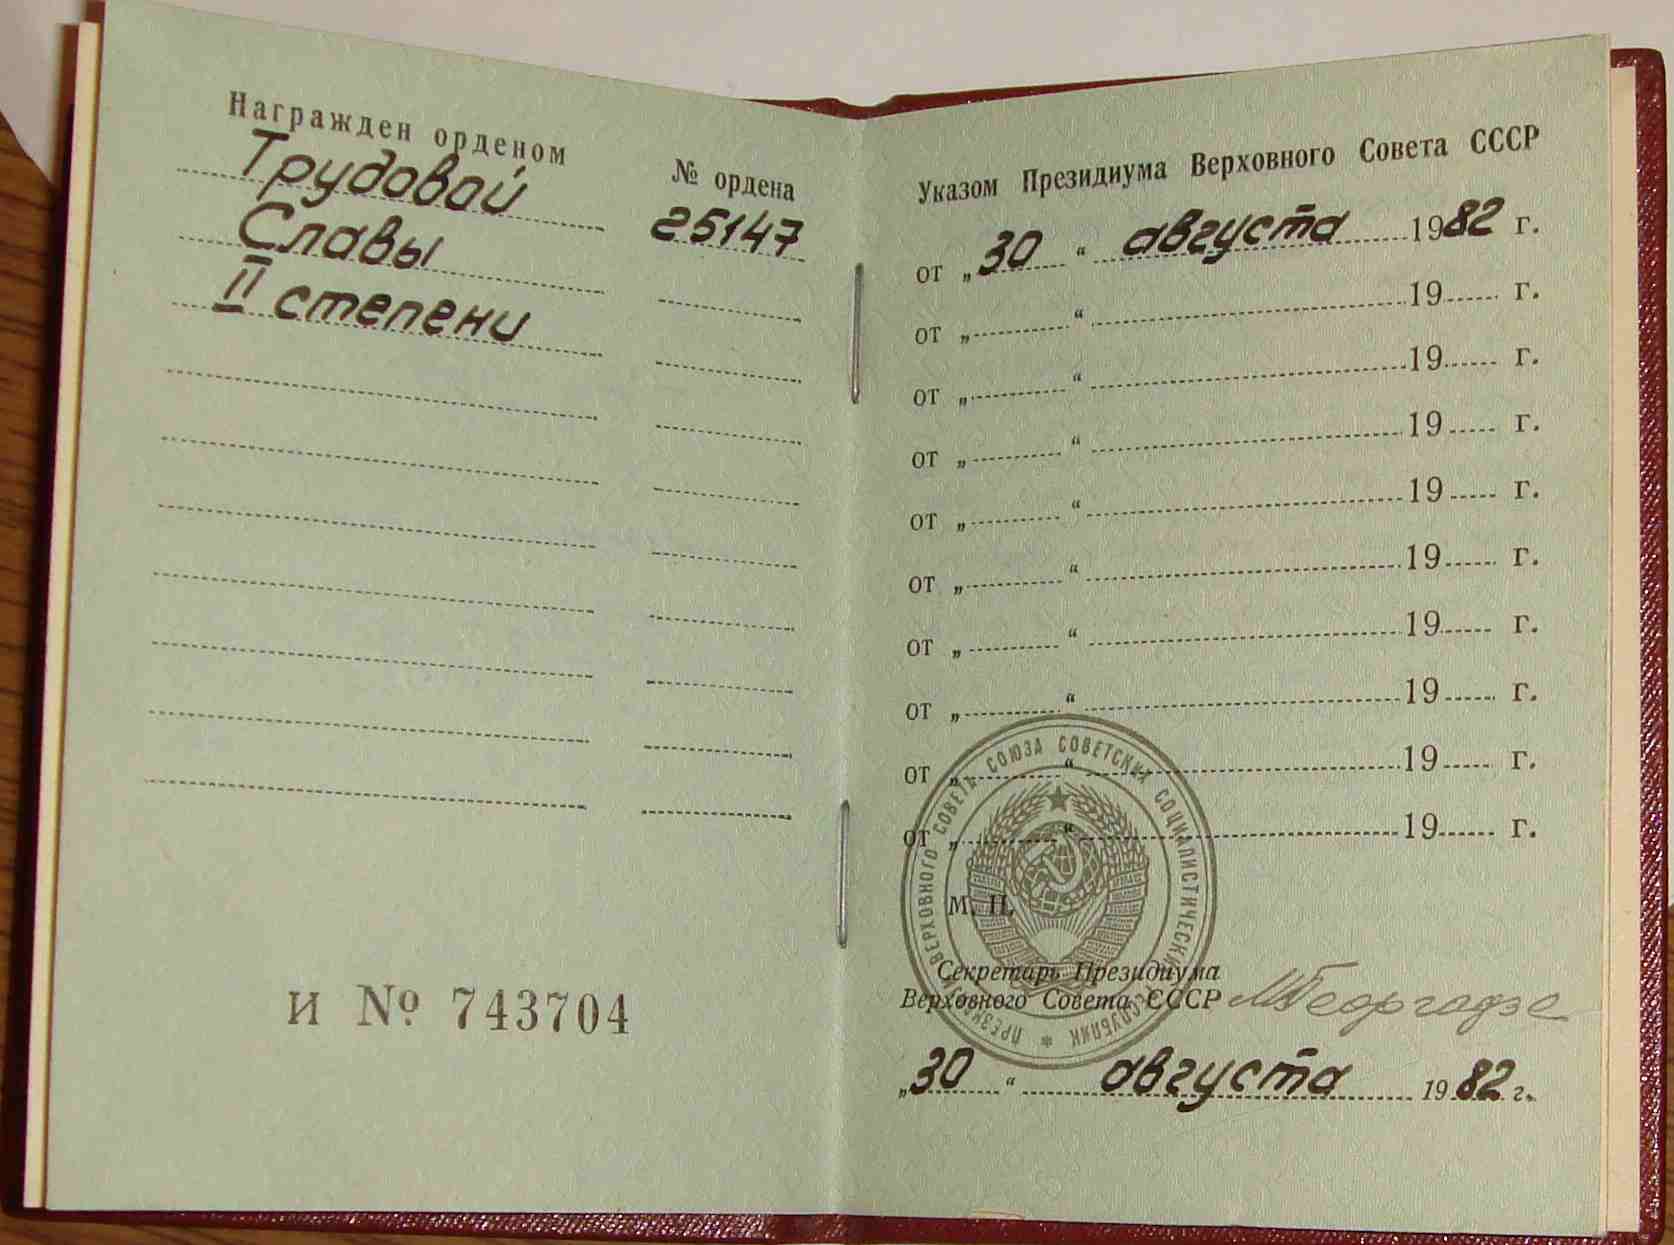 Награжден орденом
№ ордена
Трудовой
25147
Славы
II степени
И № 743704
Указом Президиума Верховного Совета СССР
от „30“ августа 1982 г.
от „ “ 19 г.
от „ “ 19 г.
от „ “ 19 г.
от „ “ 19 г.
от „ “ 19 г.
от „ “ 19 г.
от „ “ 19 г.
от „ “ 19 г.
от „ “ 19 г.
М. П.
ПРЕЗИДИУМ ВЕРХОВНОГО СОВЕТА СОЮЗА СОВЕТСКИХ СОЦИАЛИСТИЧЕСКИХ РЕСПУБЛИК *
Секретарь Президиума
Верховного Совета СССР МГеоргадзе
„30“ августа 1982 г.